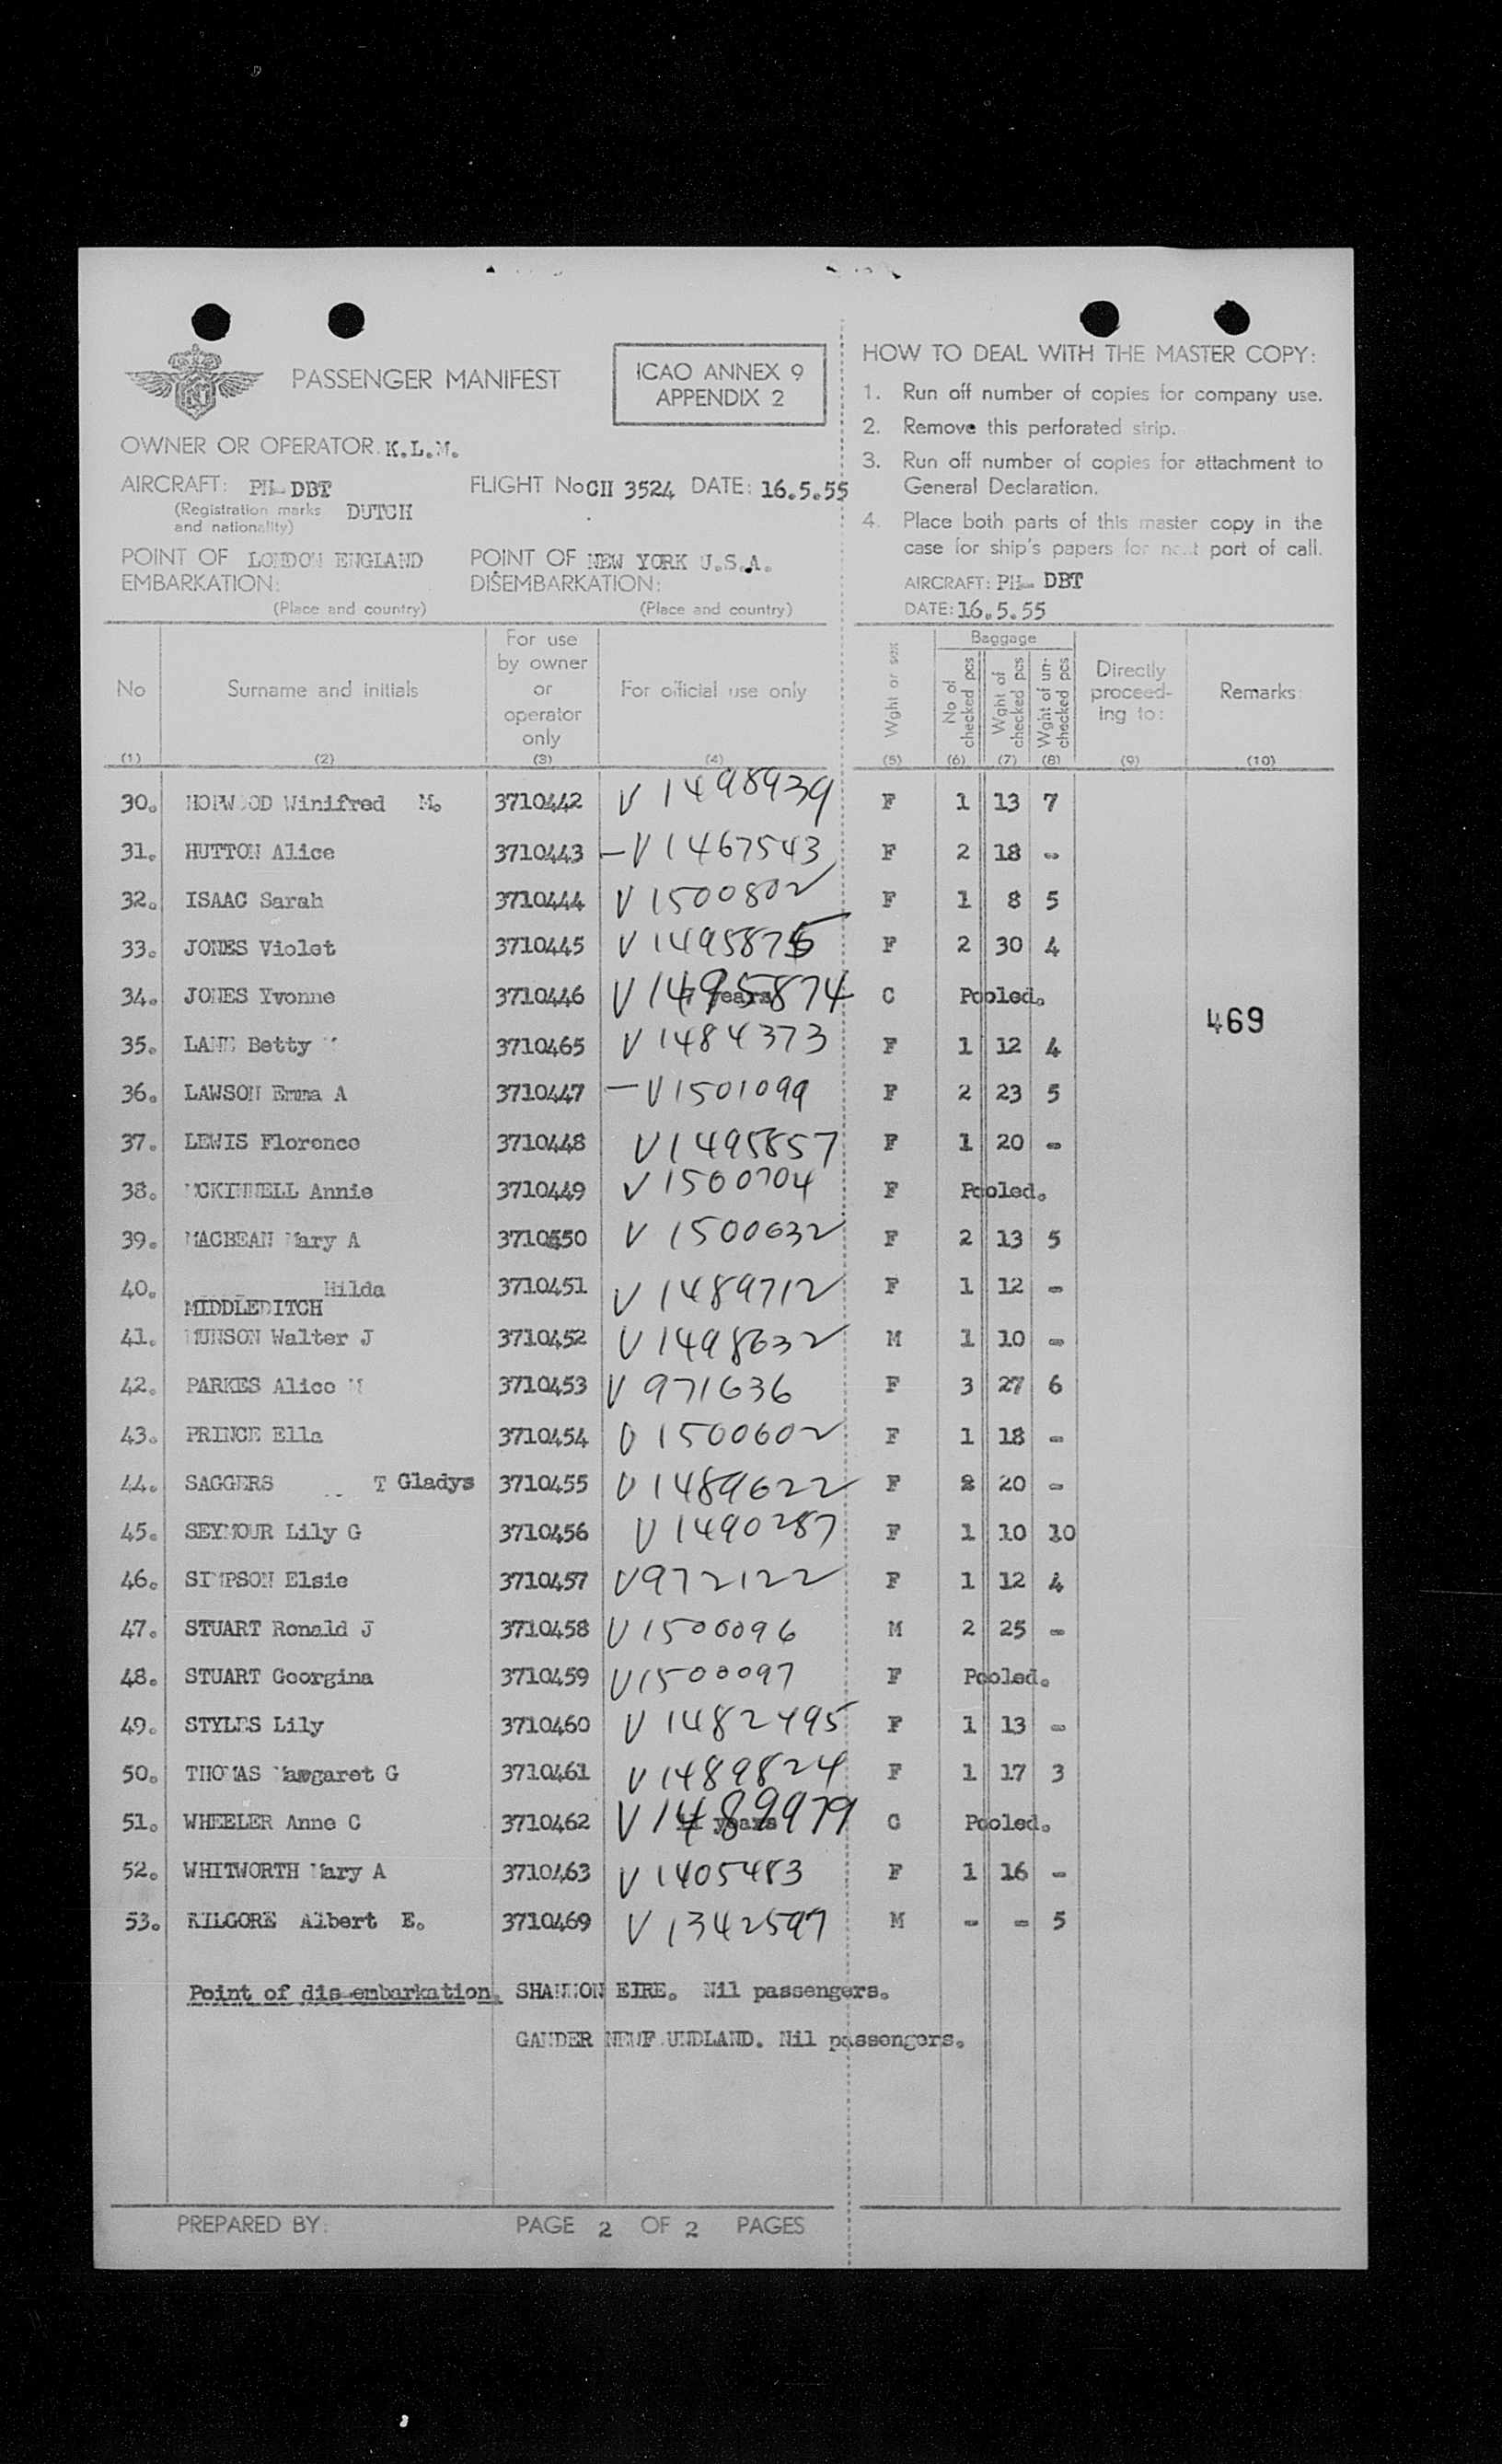 PASSENGER MANIFEST
ICAO ANNEX 9
APPENDIX 2
OWNER OR OPERATOR. K.L.M.
AIRCRAFT: PH- DBT
(Registration marks and nationality) DUTCH
FLIGHT No CH 3524 DATE: 16.5.55
POINT OF EMBARKATION: LONDON ENGLAND
(Place and country)
POINT OF DISEMBARKATION: NEW YORK U.S.A.
(Place and country)
HOW TO DEAL WITH THE MASTER COPY:
1. Run off number of copies for company use.
2. Remove this perforated strip.
3. Run off number of copies for attachment to
General Declaration.
4. Place both parts of this master copy in the
case for ship's papers for next port of call.
AIRCRAFT: PH- DBT
DATE: 16.5.55
No (1) Surname and initials (2) For use by owner or operator only (3) For official use only (4) Wght or sex (5) Baggage No of checked pcs (6) Wght of checked pcs (7) Wght of un-checked pcs (8) Directly proceed-ing to: (9) Remarks: (10)
30. HOPWOOD Winifred M. 3710442 V 1498939 F 1 13 7
31. HUTTON Alice 3710443 – V 1467543 F 2 18 -
32. ISAAC Sarah 3710444 V 1500802 F 1 8 5
33. JONES Violet 3710445 V 1495875 F 2 30 4
34. JONES Yvonne 3710446 7 years V 1495874 C Pooled.
469
35. LANE Betty 3710465 V 1484373 F 1 12 4
36. LAWSON Emma A 3710447 – V 1501099 F 2 23 5
37. LEWIS Florence 3710448 V 1495857 F 1 20 -
38. MCKINNELL Annie 3710449 V 1500704 F Pooled.
39. MACBEAN Mary A 3710550 V 1500632 F 2 13 5
40. MIDDLEDITCH Hilda 3710451 V 1489712 F 1 12 -
41. MUNSON Walter J 3710452 V 1498632 M 1 10 -
42. PARKES Alice M 3710453 V 971636 F 3 27 6
43. PRINCE Ella 3710454 V 1500602 F 1 18 -
44. SAGGERS T Gladys 3710455 V 1489622 F 2 20 -
45. SEYMOUR Lily G 3710456 V 1490287 F 1 10 10
46. SIMPSON Elsie 3710457 V 972122 F 1 12 4
47. STUART Ronald J 3710458 V 1500096 M 2 25 -
48. STUART Georgina 3710459 V 1500097 F Pooled.
49. STYLES Lily 3710460 V 1482495 F 1 13 -
50. THOMAS Mawgaret G 3710461 V 1489824 F 1 17 3
51. WHEELER Anne C 3710462 11 years V 1489979 C Pooled.
52. WHITWORTH Mary A 3710463 V 1405483 F 1 16 -
53. KILGORE Albert E. 3710469 V 1342597 M - - 5
Point of dis-embarkation. SHANNON EIRE. Nil passengers.
GANDER NEWFOUNDLAND. Nil passengers.
PREPARED BY: PAGE 2 OF 2 PAGES